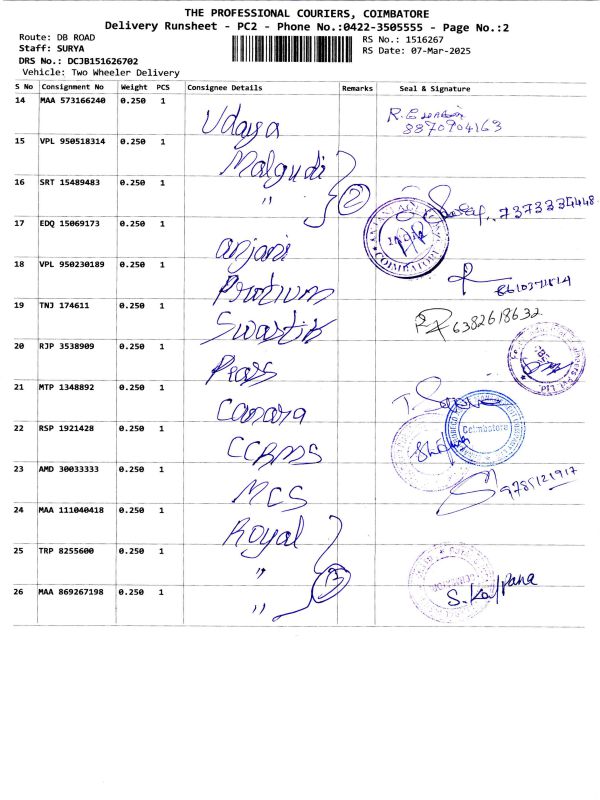 THE PROFESSIONAL COURIERS, COIMBATORE
Delivery Runsheet - PC2 - Phone No.:0422-3505555 - Page No.:2
Route: DB ROAD
RS No.: 1516267
Staff: SURYA
RS Date: 07-Mar-2025
DRS No.: DCJB151626702
Vehicle: Two Wheeler Delivery
S No Consignment No Weight PCS Consignee Details Remarks Seal & Signature
14 MAA 573166240 0.250 1 Udaya
8870904163
15 VPL 950518314 0.250 1 Malgudi
16 SRT 15489483 0.250 1 " 2
17 EDQ 15069173 0.250 1 anjani
COIMBATORE
18 VPL 950230189 0.250 1 Protium
19 TNJ 174611 0.250 1 Swastik 6382618632
20 RJP 3538909 0.250 1 Pears
21 MTP 1348892 0.250 1 Canara
22 RSP 1921428 0.250 1 CCRMS
Coimbatore
23 AMD 30033333 0.250 1 MCS
9785121917
24 MAA 111040418 0.250 1 Royal
25 TRP 8255600 0.250 1 "
26 MAA 869267198 0.250 1 "
S. Kalpana